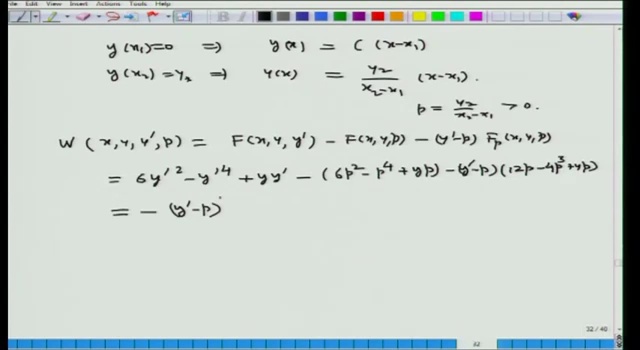 File Edit View Insert Actions Tools Help
y(x₁)=0 ⇒ y(x) = C (x-x₁)
y(x₂)=y₂ ⇒ y(x) = y₂/(x₂-x₁) (x-x₁).
p = y₂/(x₂-x₁) > 0.
W (x, y, y', p) = F(x, y, y') - F(x, y, p) - (y'-p) Fₚ(x, y, p)
= 6y'² - y'⁴ + yy' - (6p² - p⁴ + yp) - (y'-p)(12p - 4p³ + yp)
= - (y'-p)
32 / 40
32